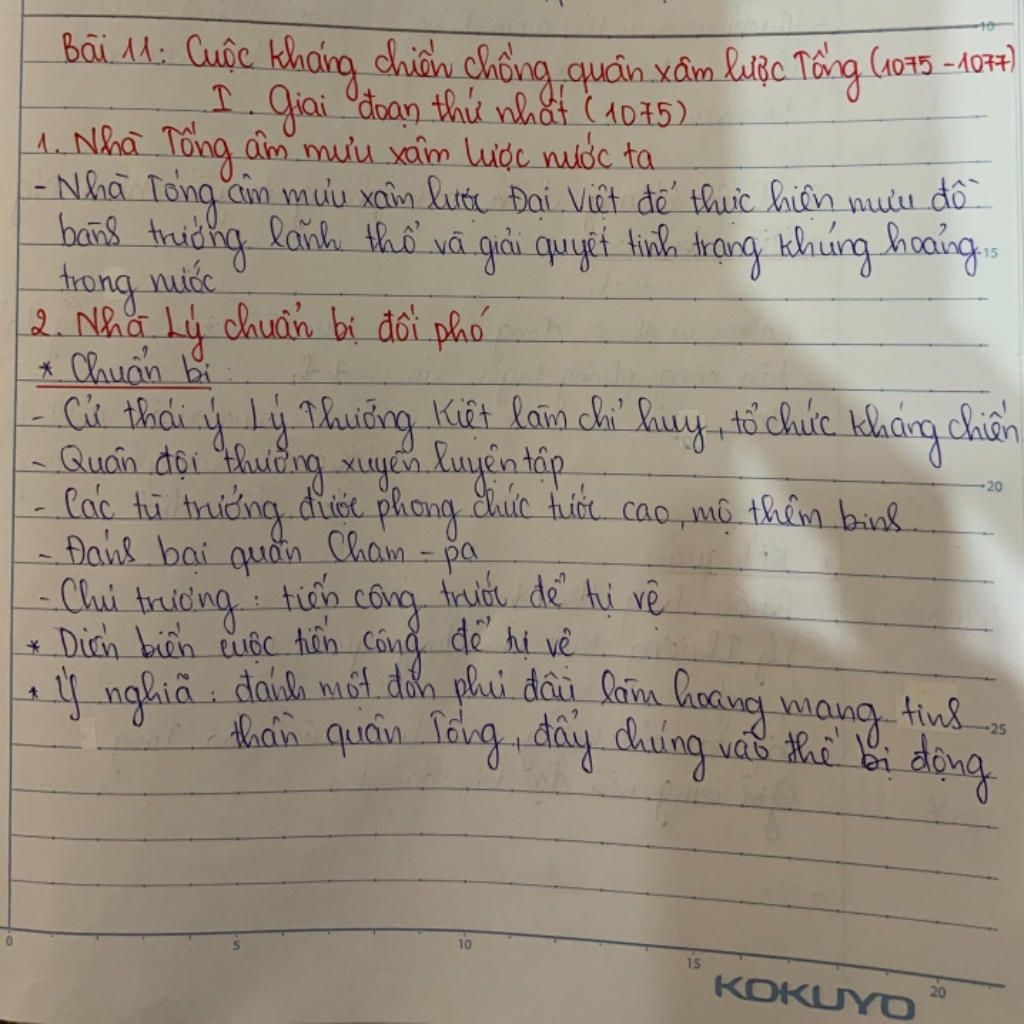 Bài 11: Cuộc kháng chiến chống quân xâm lược Tống (1075 - 1077)
I. Giai đoạn thứ nhất (1075)
1. Nhà Tống âm mưu xâm lược nước ta
- Nhà Tống âm mưu xâm lược Đại Việt để thực hiện mưu đồ
bành trướng lãnh thổ và giải quyết tình trạng khủng hoảng
trong nước
2. Nhà Lý chuẩn bị đối phó
* Chuẩn bị:
- Cử thái ý Lý Thường Kiệt làm chỉ huy, tổ chức kháng chiến
- Quân đội thường xuyên luyện tập
- Các tù trưởng được phong chức tước cao, mộ thêm binh
- Đánh bại quân Cham-pa
- Chủ trương: tiến công trước để tự vệ
* Diễn biến cuộc tiến công để tự vệ
* Ý nghĩa: đánh một đòn phủ đầu làm hoang mang tinh
thần quân Tống, đẩy chúng vào thế bị động
10
15
20
25
0 5 10 15 20
KOKUYO